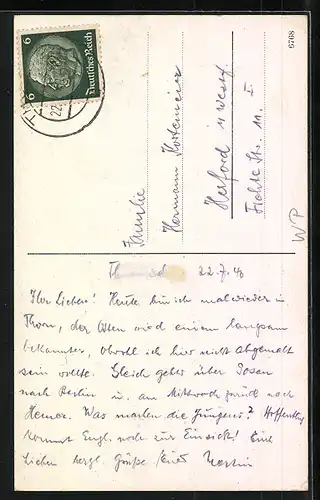 6 6
Deutsches Reich
22.
6768
Familie
Hermann Kortemeier
Herford i/ Westf.
Fichte Str. 11 I
WP
Th 22.7.40
Ihr Lieben! Heute bin ich mal wieder in
Thorn, der Osten wird einem langsam
bekannter, obwohl ich hier nicht abgemalt
sein wollte. Gleich gehts über Posen
nach Berlin u. am Mittwoch zurück nach
Hemer. Was machen die Jungens? Hoffentlich
kommt Engl. noch zur Einsicht! Euch
Lieben herzl. Grüße Euer